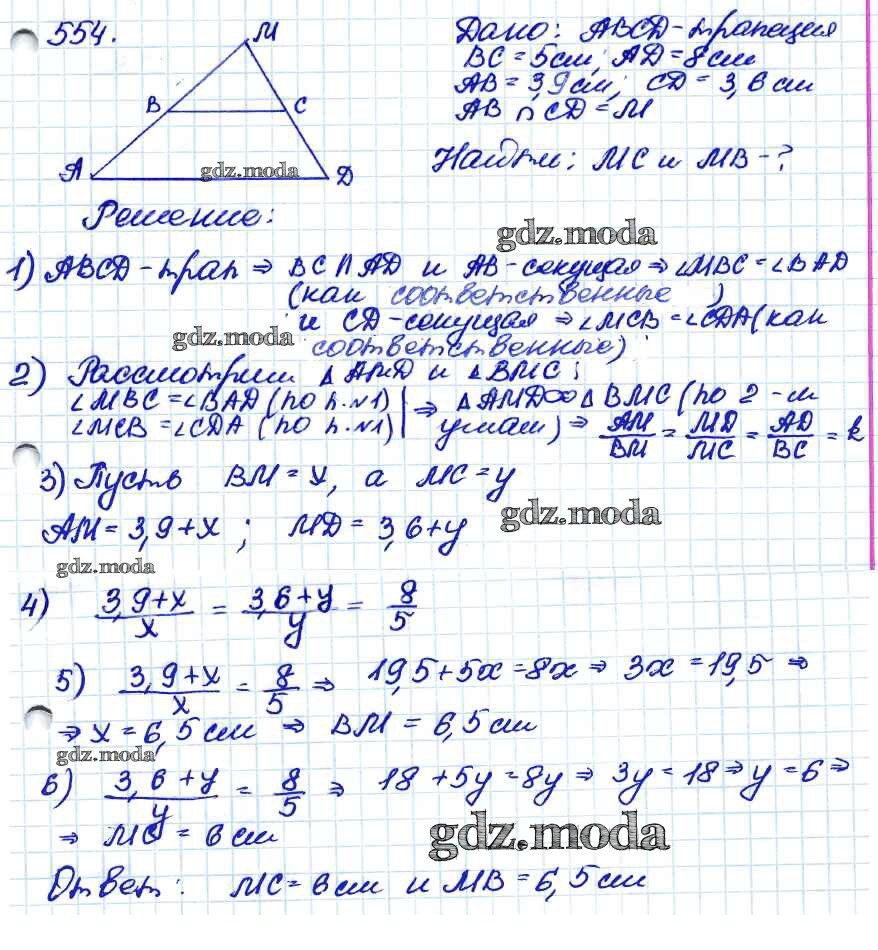 554.
M
B
C
A
D
gdz.moda
Дано: ABCD - трапеция
BC = 5см; AD = 8см
AB = 3,9см; CD = 3,6см
AB ∩ CD = M
Найти: MC и MB - ?
Решение:
gdz.moda
1) ABCD - трап ⇒ BC ∩ AD и AB - секущая ⇒ ∠MBC = ∠BAD
(как соответственные )
и CD - секущая ⇒ ∠MCB = ∠CDA (как
gdz.moda
соответственные)
2) Рассмотрим △AMD и △BMC;
∠MBC = ∠BAD (по п.№1) | ⇒ △AMD∞△BMC (по 2-м
∠MCB = ∠CDA (по п.№1) | углам) ⇒ AM/BM = MD/MC = AD/BC = k
3) Пусть BM = x, а MC = y
gdz.moda
AM = 3,9 + x ; MD = 3,6 + y
gdz.moda
4) 3,9+x/x = 3,6+y/y = 8/5
5) 3,9+x/x = 8/5 ⇒ 19,5 + 5x = 8x ⇒ 3x = 19,5 ⇒
⇒ x = 6,5 см ⇒ BM = 6,5 см
gdz.moda
6) 3,6+y/y = 8/5 ⇒ 18 + 5y = 8y ⇒ 3y = 18 ⇒ y = 6 ⇒
⇒ MC = 6 см
gdz.moda
Ответ: MC = 6 см и MB = 6,5 см